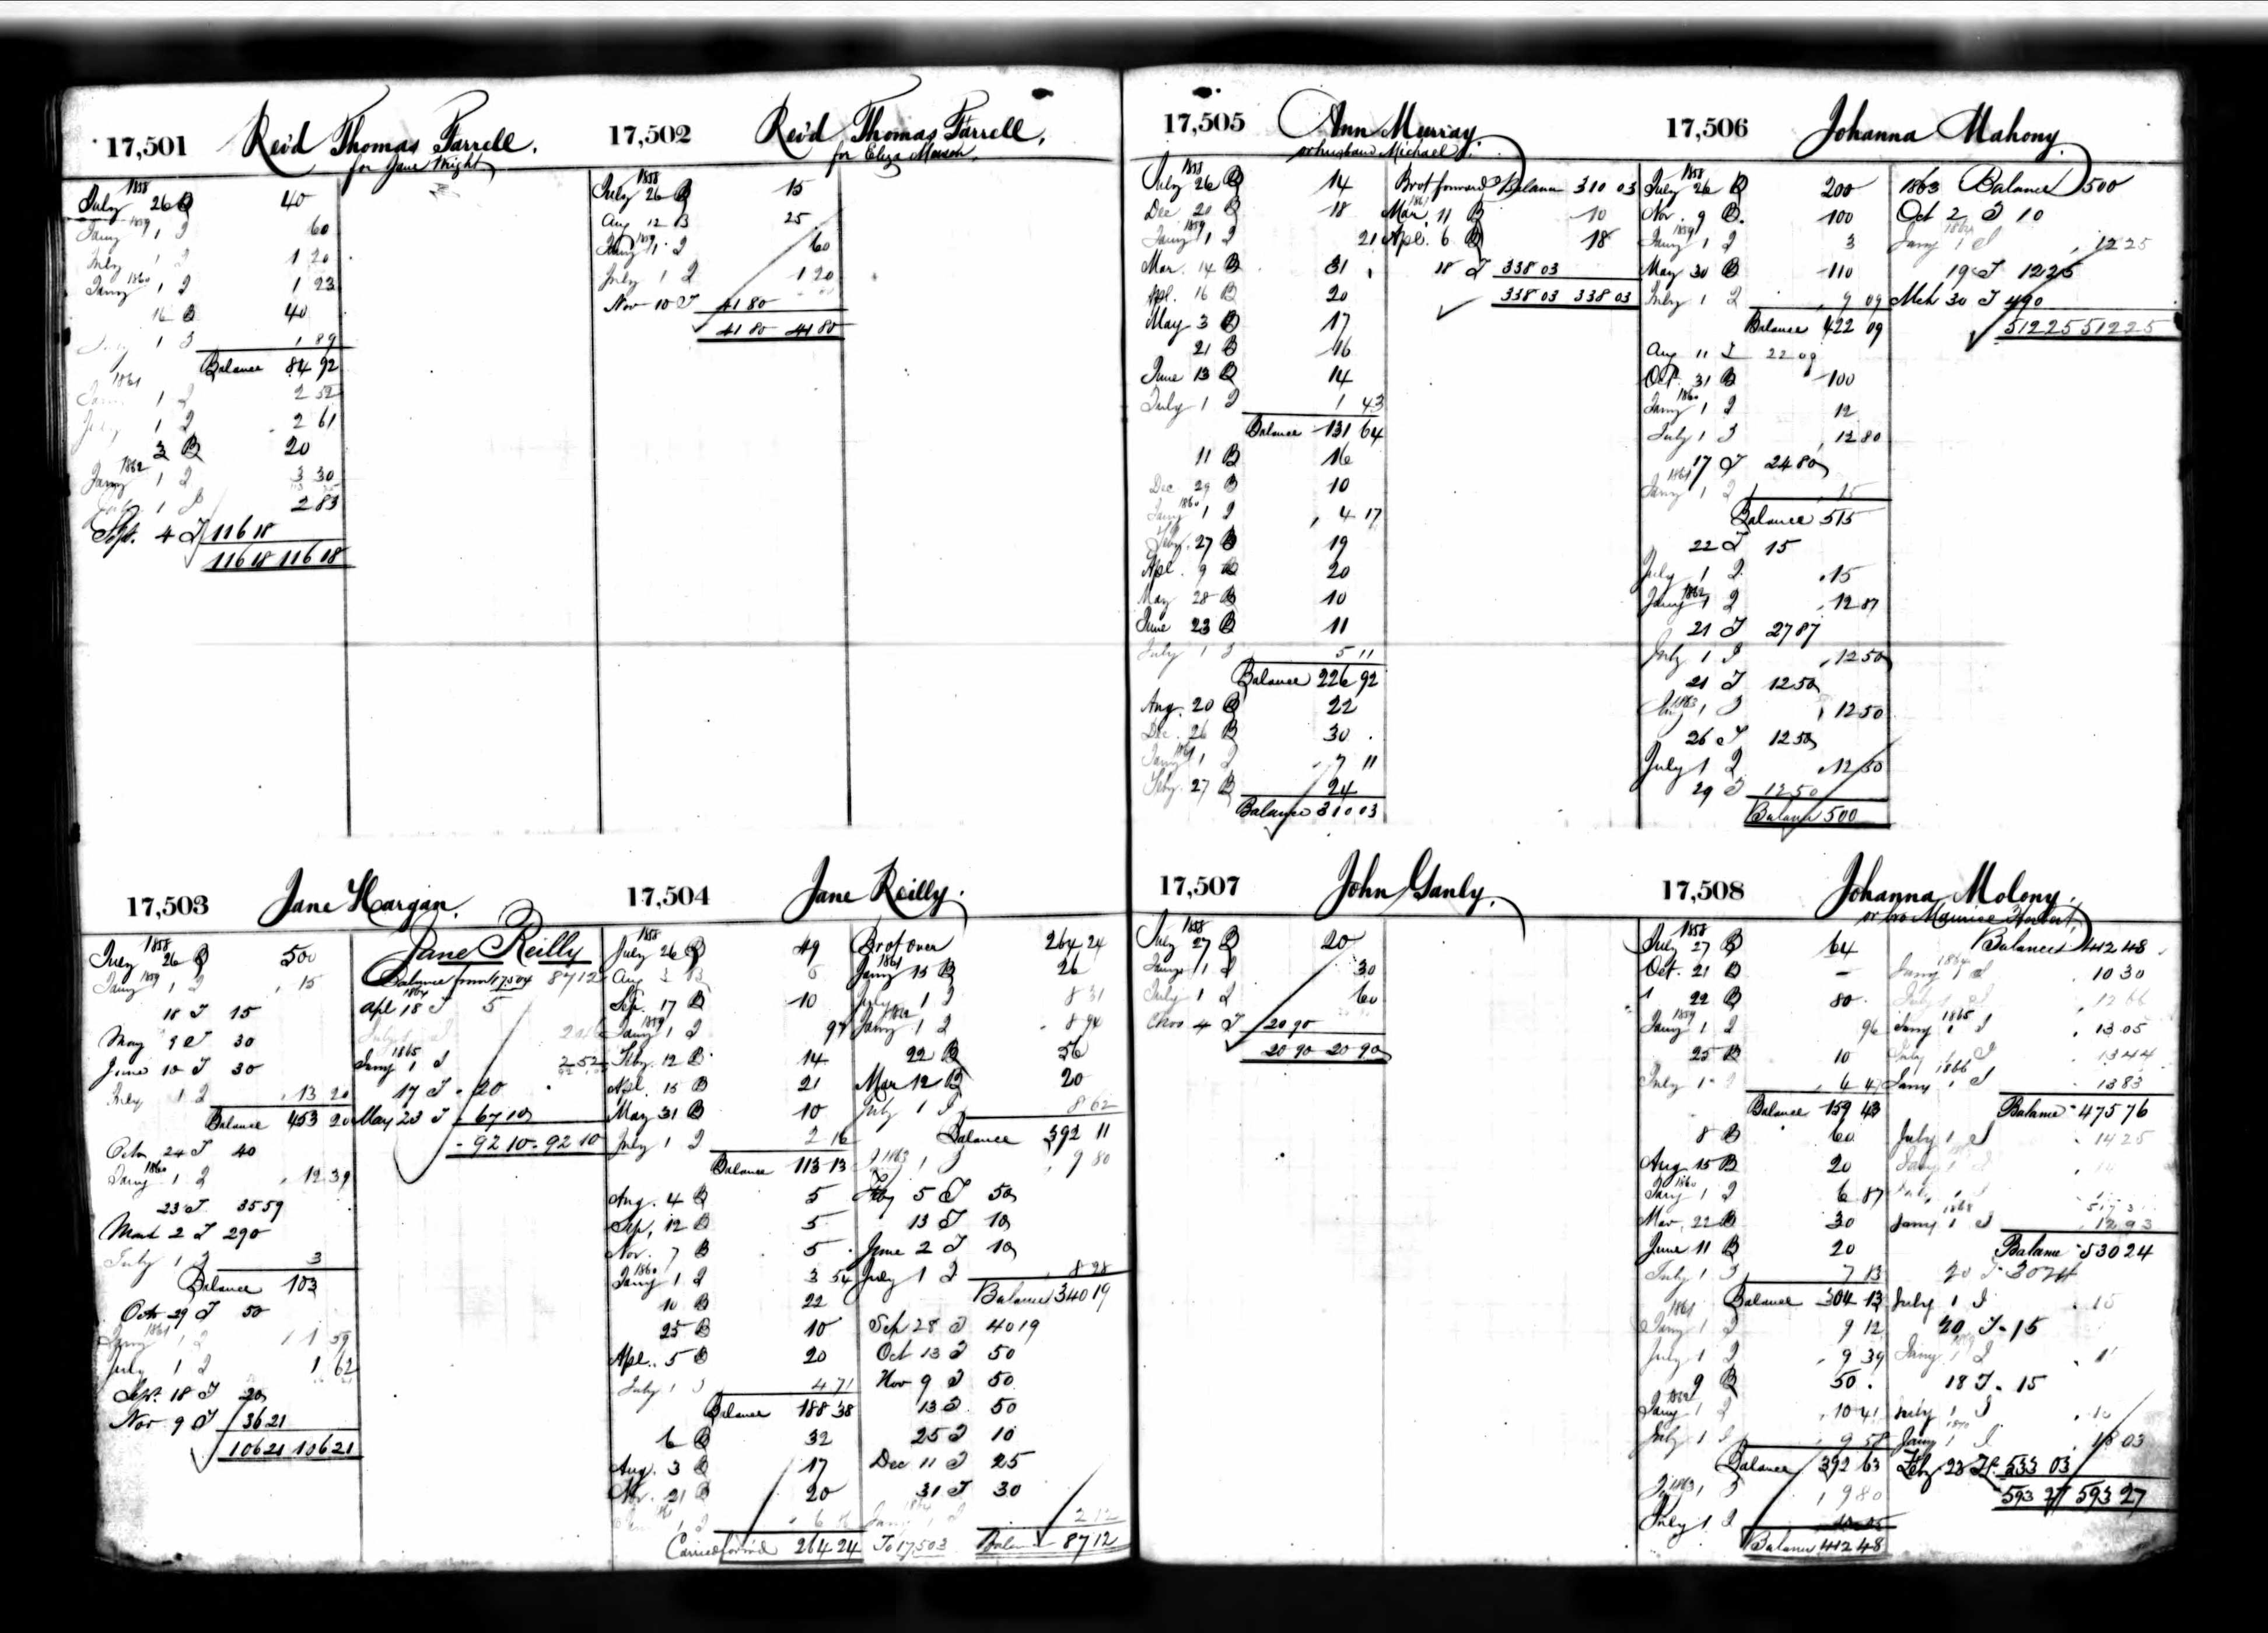 17,501 Rev'd Thomas Farrell.
for Jane Wright
1858
July 26 B 40
1859
Jany 1 I 60
July 1 I 1 20
1860
Jany 1 I 1 23
16 B 40
1 I 1 89
Balance 84 92
1861
1 I 2 52
July 1 I 2 61
3 B 20
1862
Jany 1 I 3 30
July 1 I 2 83
Sept. 4 T 116 18
116 18 116 18
17,502 Rev'd Thomas Farrell.
for Eliza
1858
July 26 B 15
Aug 12 B 25
1859
Jany 1 I 60
July 1 I 1 20
Nov 10 T 41 80
41 80 41 80
17,503 Jane Hargan.
1858
July 26 B 500
1859
Jany 1 I 15
18 T 15
May 9 T 30
June 10 T 30
July 1 I 13 20
Balance 453 20
Octr 24 T 40
1860
Jany 1 I 12 39
23 T 35 59
March 2 T 290
July 1 I 3
Balance 103
Octr 29 T 50
1861
Jany 1 I 1 59
July 1 I 1 62
Sept. 18 T 20
Nov 9 T 36 21
106 21 106 21
Jane Reilly
Balance from 17,504 87 12
1864
Apl 18 T 5
July 1 I
1865
Jany 1 I 2 52
17 T 20
May 23 T 67 10
92 10 92 10
17,504 Jane Reilly.
1858
July 26 B 49
Aug 3 B 5
Sep. 17 B 10
1859
Jany 1 I 97
Feby. 12 B 14
Apl. 15 B 21
May 31 B 10
July 1 I 2 16
Balance 113 13
Aug. 4 B 5
Sep. 12 B 5
Nov. 7 B 5
1860
Jany 1 I 3 54
10 B 22
25 B 10
Apl. 5 B 20
July 1 I 4 71
Balance 188 38
6 B 32
Aug. 3 B 17
21 B 20
1 I 6 86
Carried forw'd 264 24
Brot over 264 24
1861
Jany 15 B 26
July 1 I 8 31
1862
Jany 1 I 8 94
22 B 56
Mar 12 B 20
July 1 I 8 62
Balance 392 11
1863
1 I 9 80
Feby 5 T 50
13 T 10
June 2 T 10
July 1 I 8 28
Balance 340 19
Sep 28 T 40 19
Oct 13 T 50
Nov 9 T 50
13 T 50
25 T 10
Dec 11 T 25
31 T 30
1864
Jany 1 I 2 12
To 17,503 Balance 87 12
17,505 Ann Murray
or husband Michael
1858
July 26 B 14
Dec 20 B 18
1859
Jany 1 I 21
Mar. 14 B 31
Apl. 16 B 20
May 3 B 17
21 B 16
June 13 B 14
July 1 I 1 43
Balance 131 64
11 B 16
Dec 29 B 10
1860
Jany 1 I 4 17
Feby. 27 B 19
Apl. 9 B 20
May 28 B 10
June 23 B 11
July 1 I 5 11
Balance 226 92
Aug. 20 B 22
Dec. 26 B 30
1861
Jany 1 I 7 11
Feby. 27 B 24
Balance 310 03
Brot forward Balance 310 03
1861
Mar. 11 B 10
Apl. 6 B 18
18 T 338 03
338 03 338 03
17,506 Johanna Mahony.
1858
July 26 B 200
Nov. 9 B. 100
1859
Jany 1 I 3
May 30 B 110
July 1 I 9 09
Balance 422 09
Aug 11 T 22 09
Oct. 31 B 100
1860
Jany 1 I 12
July 1 I 12 80
17 T 24 80
1861
Jany 1 I 15
Balance 515
22 T 15
July 1 I 15
1862
Jany 1 I 12 87
21 T 27 87
July 1 I 12 50
21 T 12 50
1863
Jany 1 I 12 50
26 T 12 50
July 1 I 12 50
29 T 12 50
Balance 500
1863 Balance 500
Oct 2 T 10
1864
Jany 1 I 12 25
19 T 12 25
Mch 30 T 490
512 25 512 25
17,507 John Ganly.
1858
July 27 B 20
Jany 1 I 30
July 1 I 60
Nov 4 T 20 90
20 90 20 90
17,508 Johanna Molony.
or bro Maurice Herbert
1858
July 27 B 64
Oct. 21 B –
22 B 80
1859
Jany 1 I 96
25 B 10
July 1 I 4 47
Balance 159 43
8 B 60
Aug 15 B 20
1860
Jany 1 I 6 87
Mar. 22 B 30
June 11 B 20
July 1 I 7 13
Balance 304 13
1861
Jany 1 I 9 12
July 1 I 9 39
9 B 50
1862
Jany 1 I 10 41
July 1 I 9 58
Balance 392 63
1863
1 I 9 80
July 1 I
Balance 412 48
Balance 412 48
1864
Jany 1 I 10 30
July 1 I 12 66
1865
Jany 1 I 13 05
July 1 I 13 44
1866
Jany 1 I 13 83
Balance 475 76
July 1 I 14 25
1868
Jany 1 I 12 93
Balance 530 24
20 T 30 24
July 1 I 15
20 T 15
Jany 1 I
18 T 15
July 1 I
1870
Jany 1 I 18 03
Feby 23 T 533 03
593 27 593 27